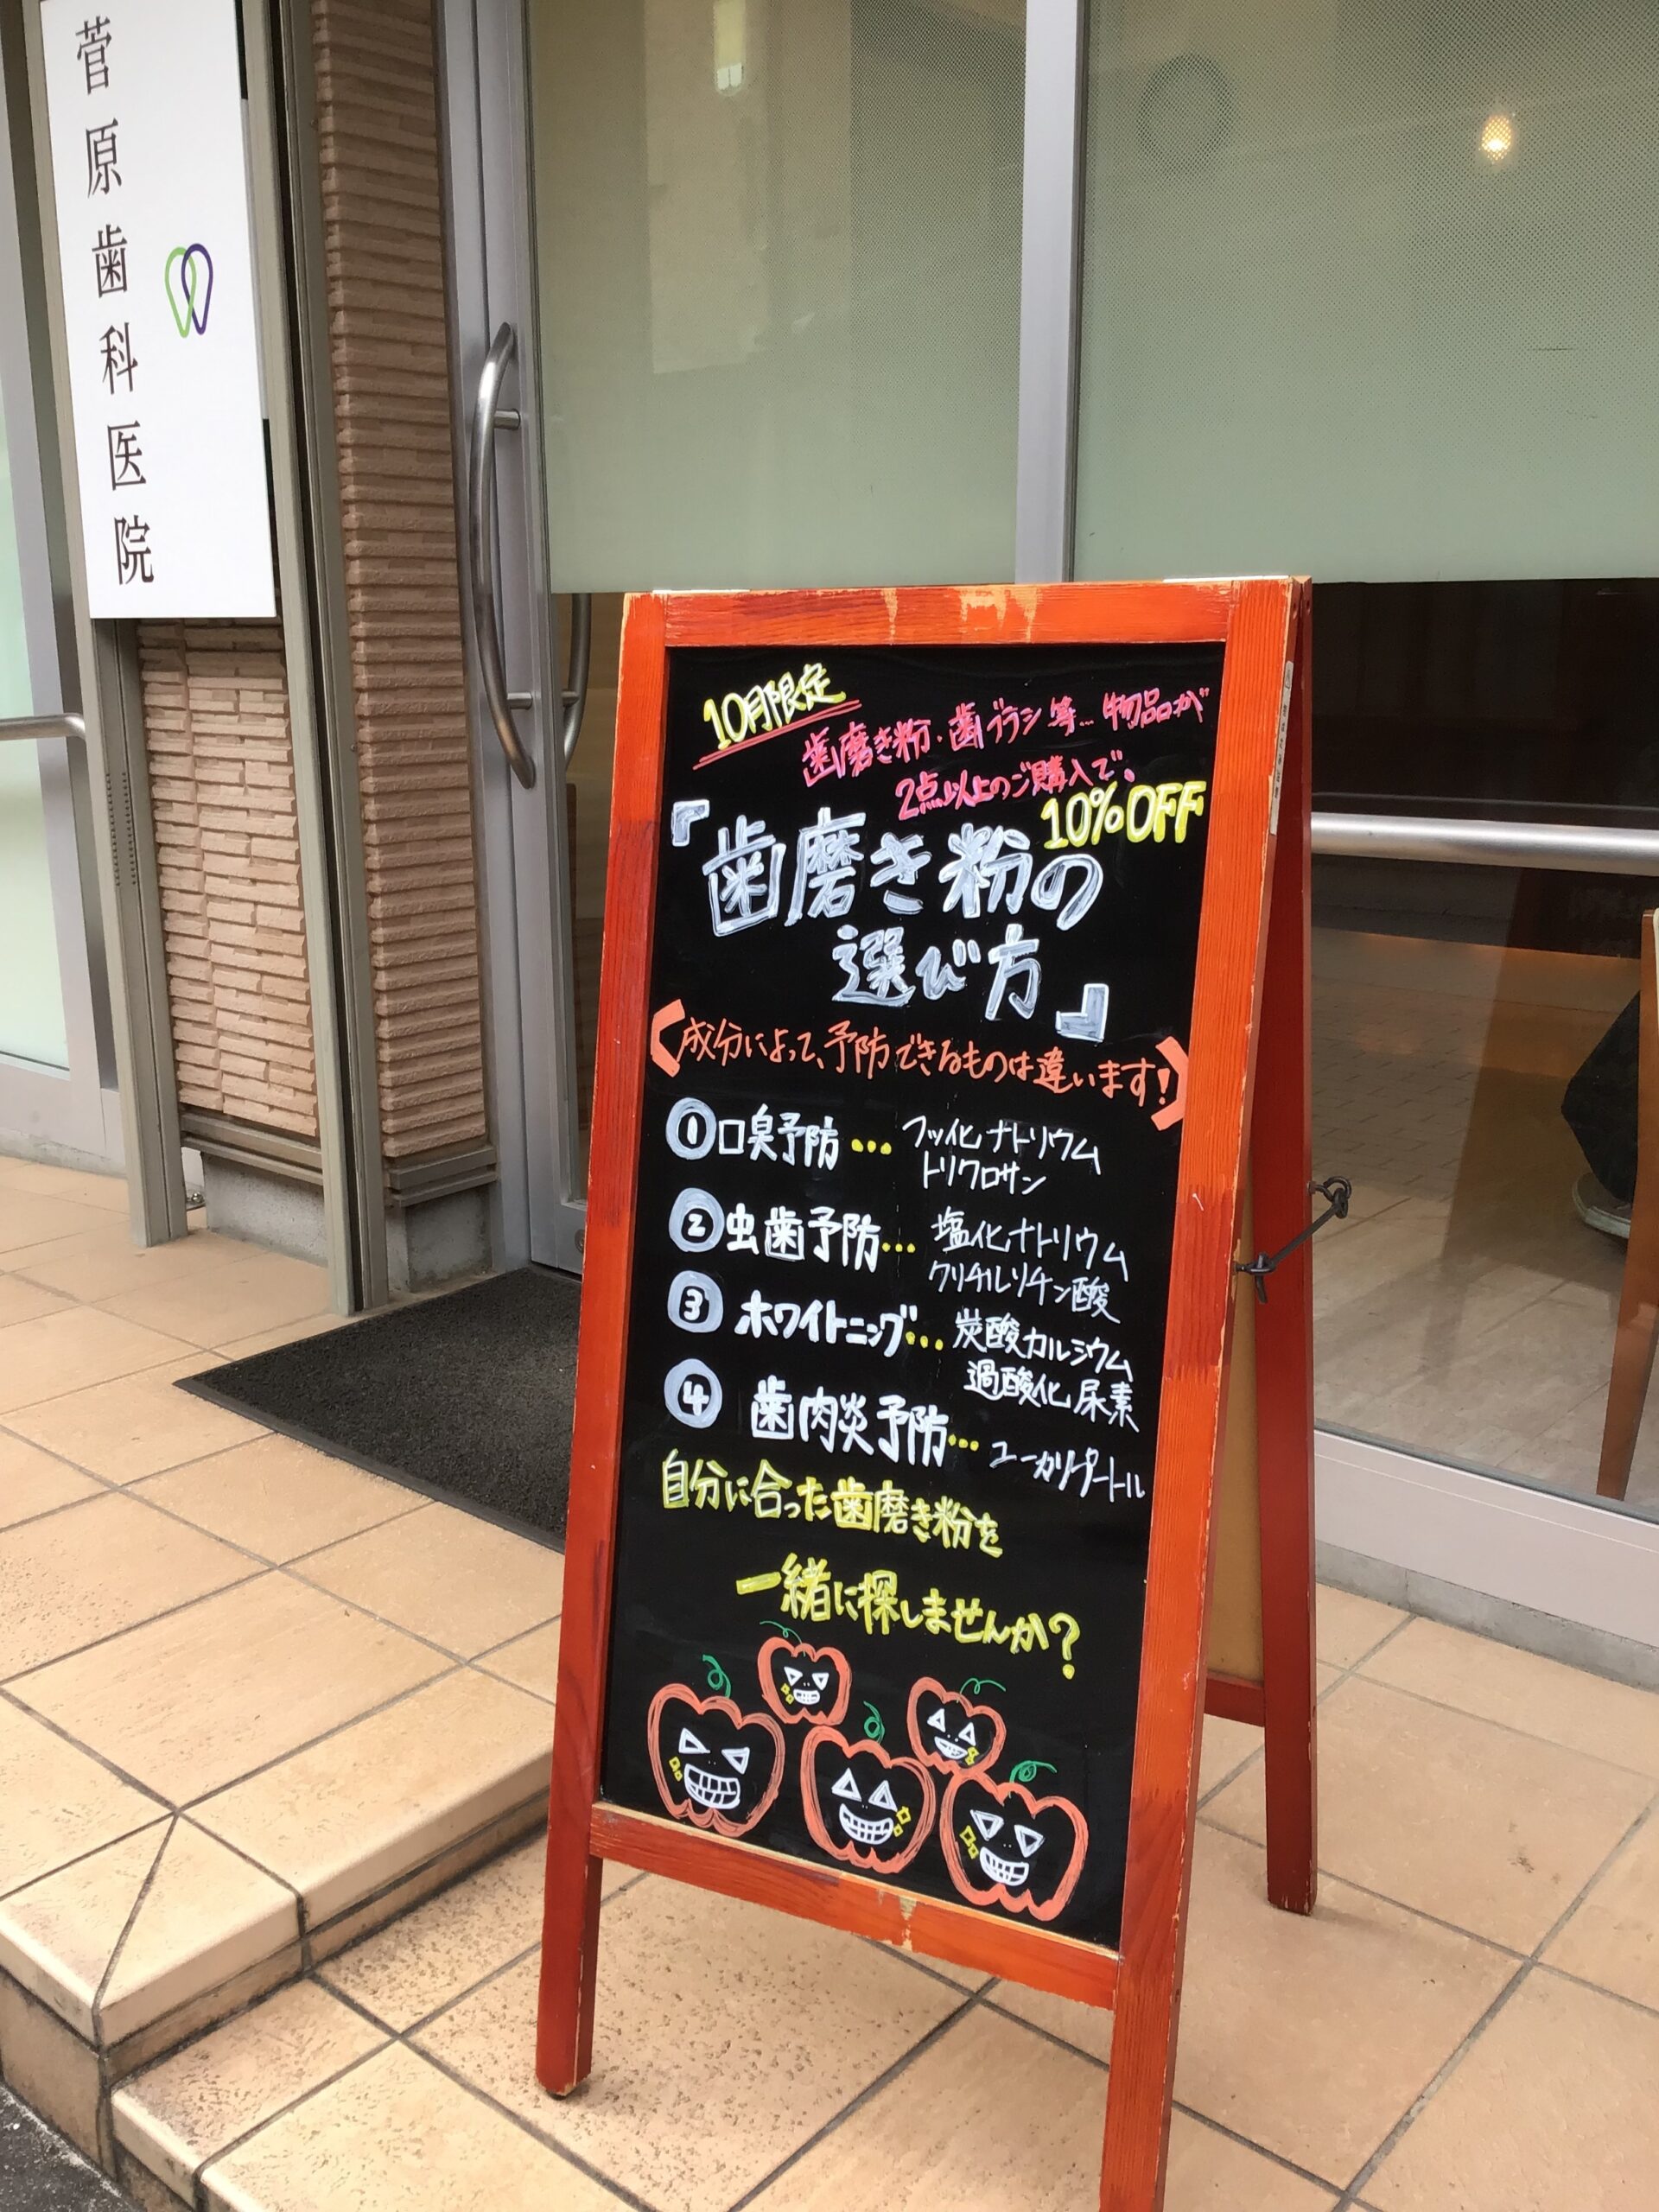 菅原歯科医院
10月限定
歯磨き粉・歯ブラシ等…物品が
2点以上のご購入で、
10%OFF
『歯磨き粉の
選び方』
成分によって、予防できるものは違います!
①口臭予防…フッ化ナトリウム
トリクロサン
②虫歯予防…塩化ナトリウム
グリチルリチン酸
③ホワイトニング…炭酸カルシウム
過酸化尿素
④歯肉炎予防…ユーカリプトール
自分に合った歯磨き粉を
一緒に探しませんか?